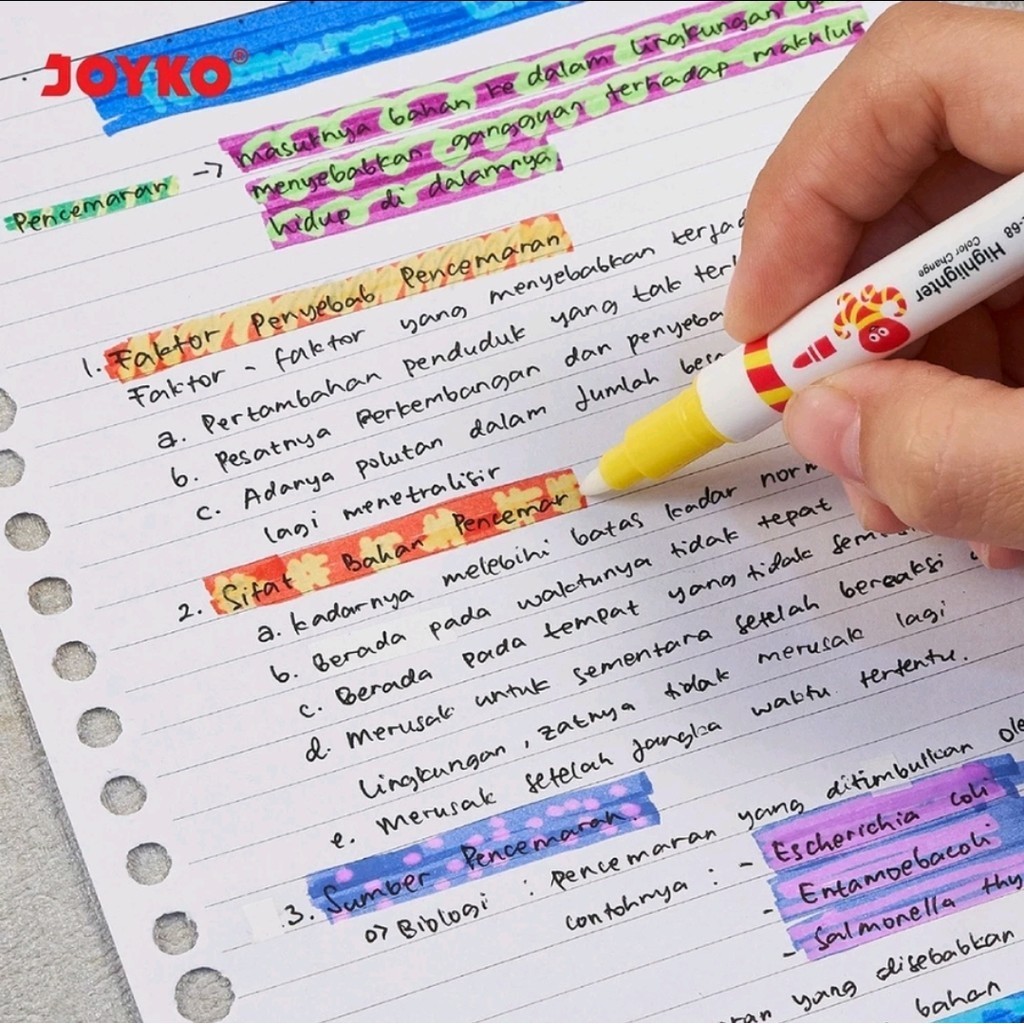 JOYKO®
masuknya bahan ke dalam lingkungan
Pencemaran → menyebabkan gangguan terhadap makhluk
hidup di dalamnya
1. Faktor Penyebab Pencemaran
Faktor - faktor yang menyebabkan
a. Pertambahan penduduk yang tak
b. Pesatnya Perkembangan dan
c. Adanya polutan dalam Jumlah
lagi menetralisir
2. Sifat Bahan Pencemar
a. kadarnya melebihi batas kadar
b. Berada pada waktunya tidak tepat
c. Berada pada tempat yang tidak
d. Merusak untuk sementara setelah bereaksi
Lingkungan, zatnya tidak merusak lagi
e. Merusak setelah Jangka waktu tertentu.
3. Sumber Pencemaran.
o) Biologi : pencemaran yang ditimbulkan
contohnya : - Escherichia Coli
- Entamoebacoli
- Salmonella
yang disebabkan
bahan
Highlighter
Color Change